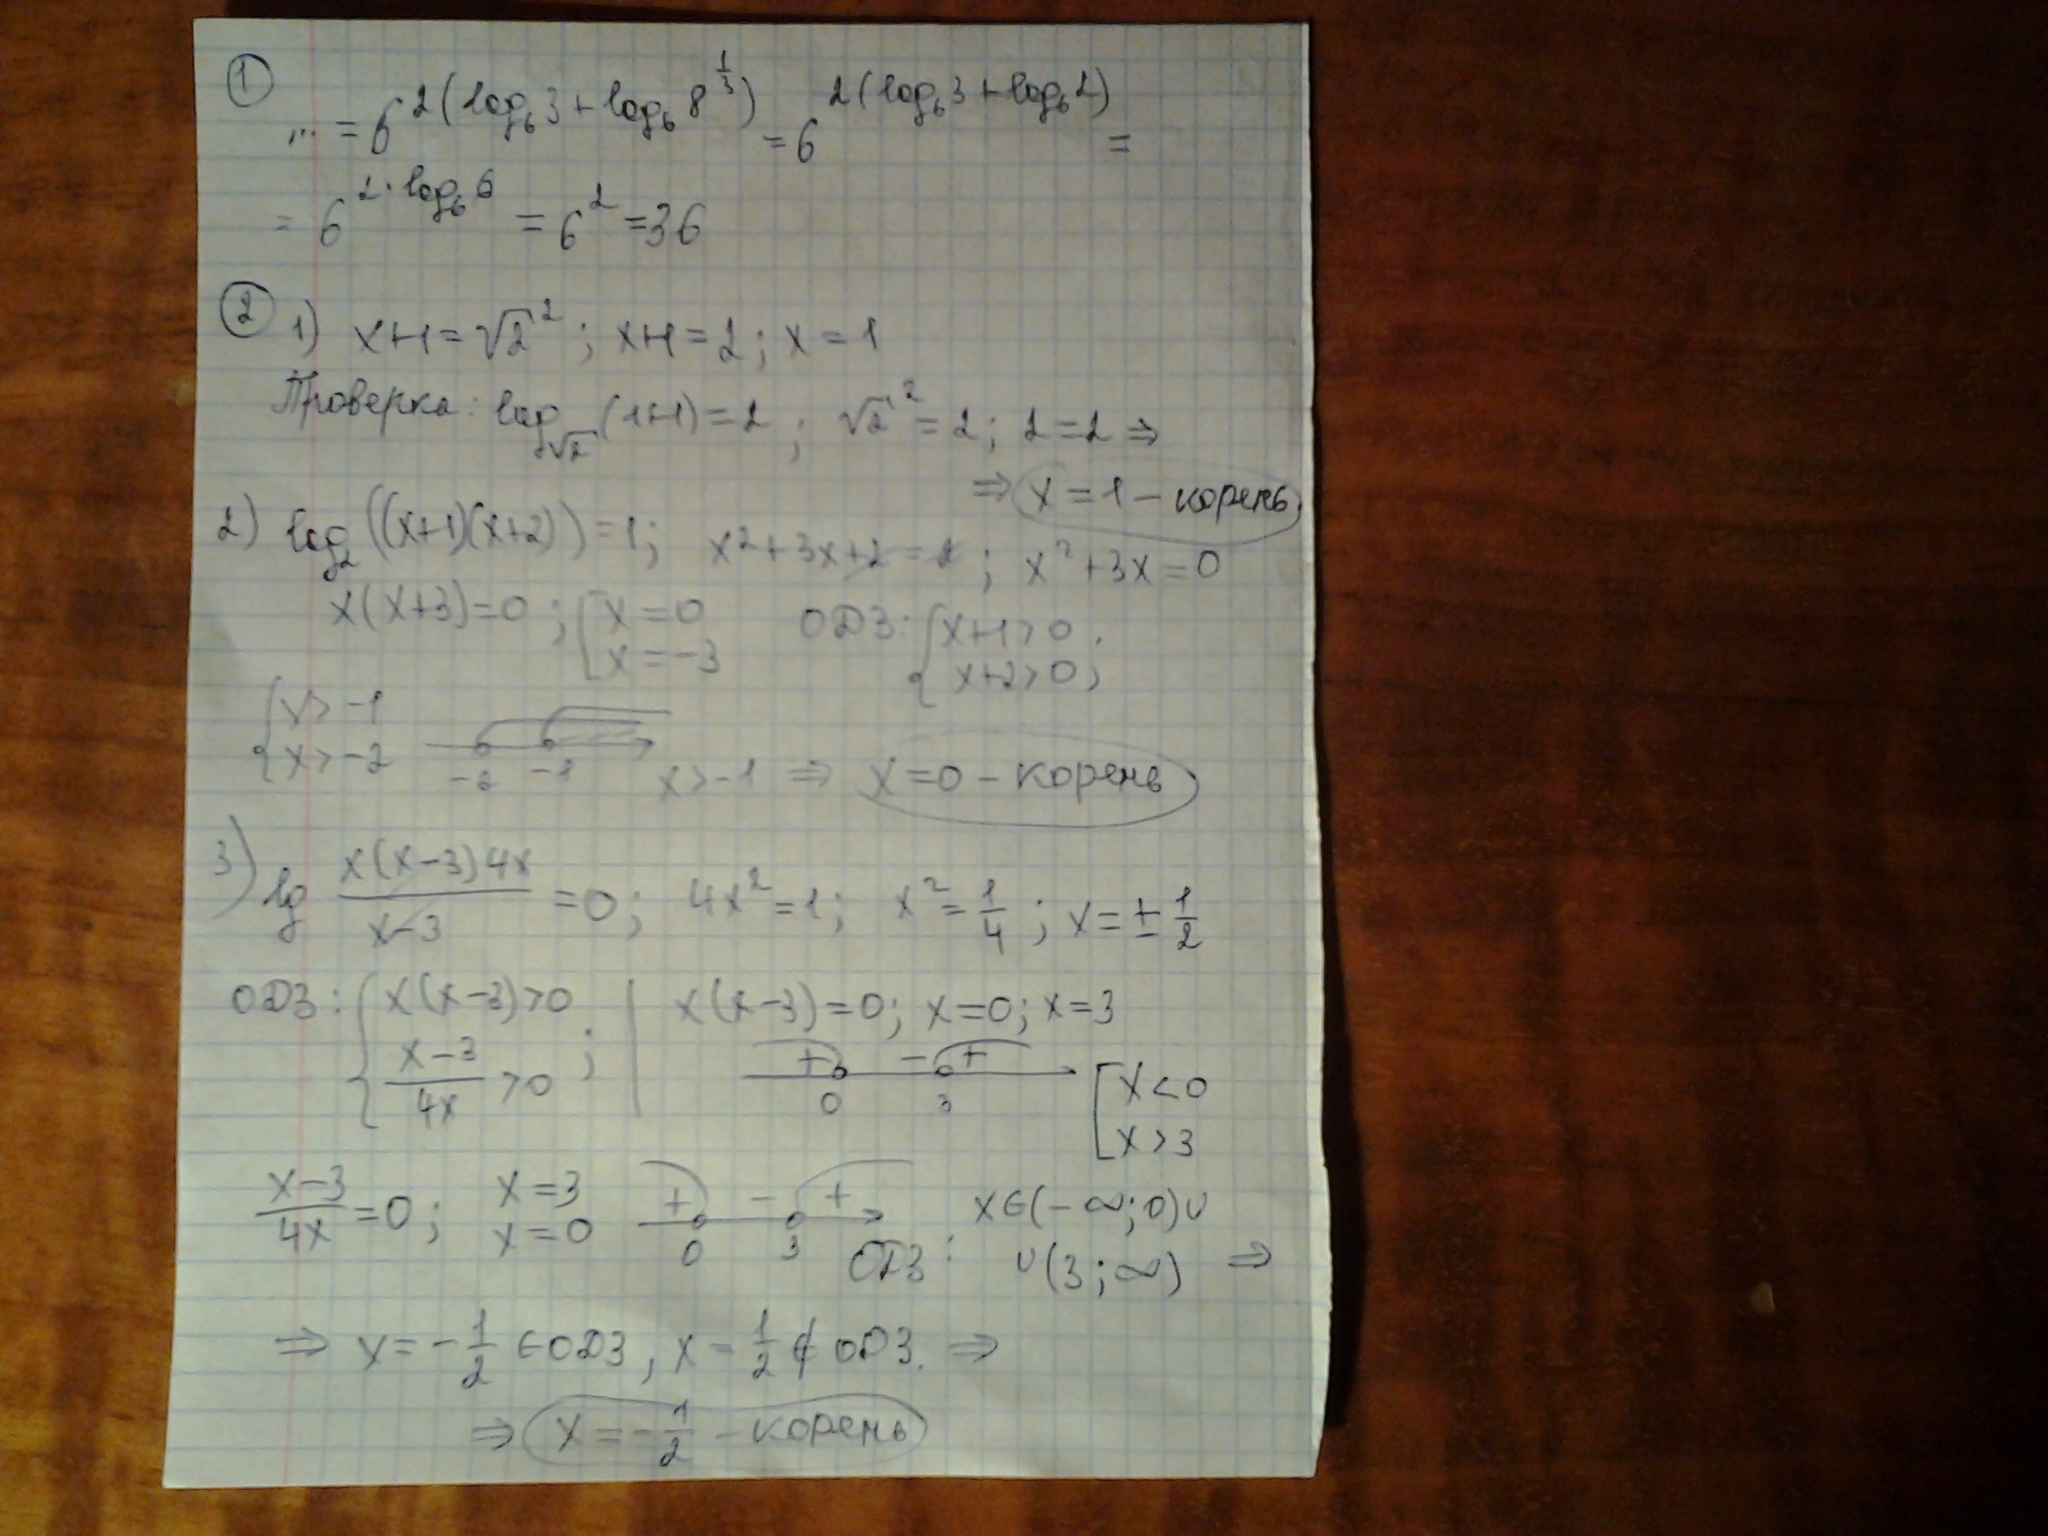 ① ... = 6^{2(log₆3 + log₆8^{1/3})} = 6^{2(log₆3 + log₆2)} =
= 6^{2·log₆6} = 6² = 36
② 1) x+1 = √2²; x+1 = 2; x = 1
Проверка: log_{√2}(1+1) = 2; √2² = 2; 2 = 2 ⇒
⇒ x = 1 – корень
2) log₂((x+1)(x+2)) = 1; x²+3x+2 = 2; x²+3x = 0
x(x+3) = 0; [x = 0 x = -3 ОДЗ: {x+1 > 0. x+2 > 0;
{x > -1 x > -2 -2 -1 x > -1 ⇒ x = 0 – корень
3) lg x(x-3)4x / x-3 = 0; 4x² = 1; x² = 1/4; x = ± 1/2
ОДЗ: {x(x-3) > 0 x-3/4x > 0; | x(x-3) = 0; x = 0; x = 3
+ - + 0 3 [x < 0 x > 3
x-3/4x = 0; x = 3 x = 0 + - + 0 3 x ∈ (-∞; 0) ∪
ОДЗ: ∪ (3; ∞) ⇒
⇒ x = -1/2 ∈ ОДЗ, x = 1/2 ∉ ОДЗ. ⇒
⇒ x = -1/2 – корень